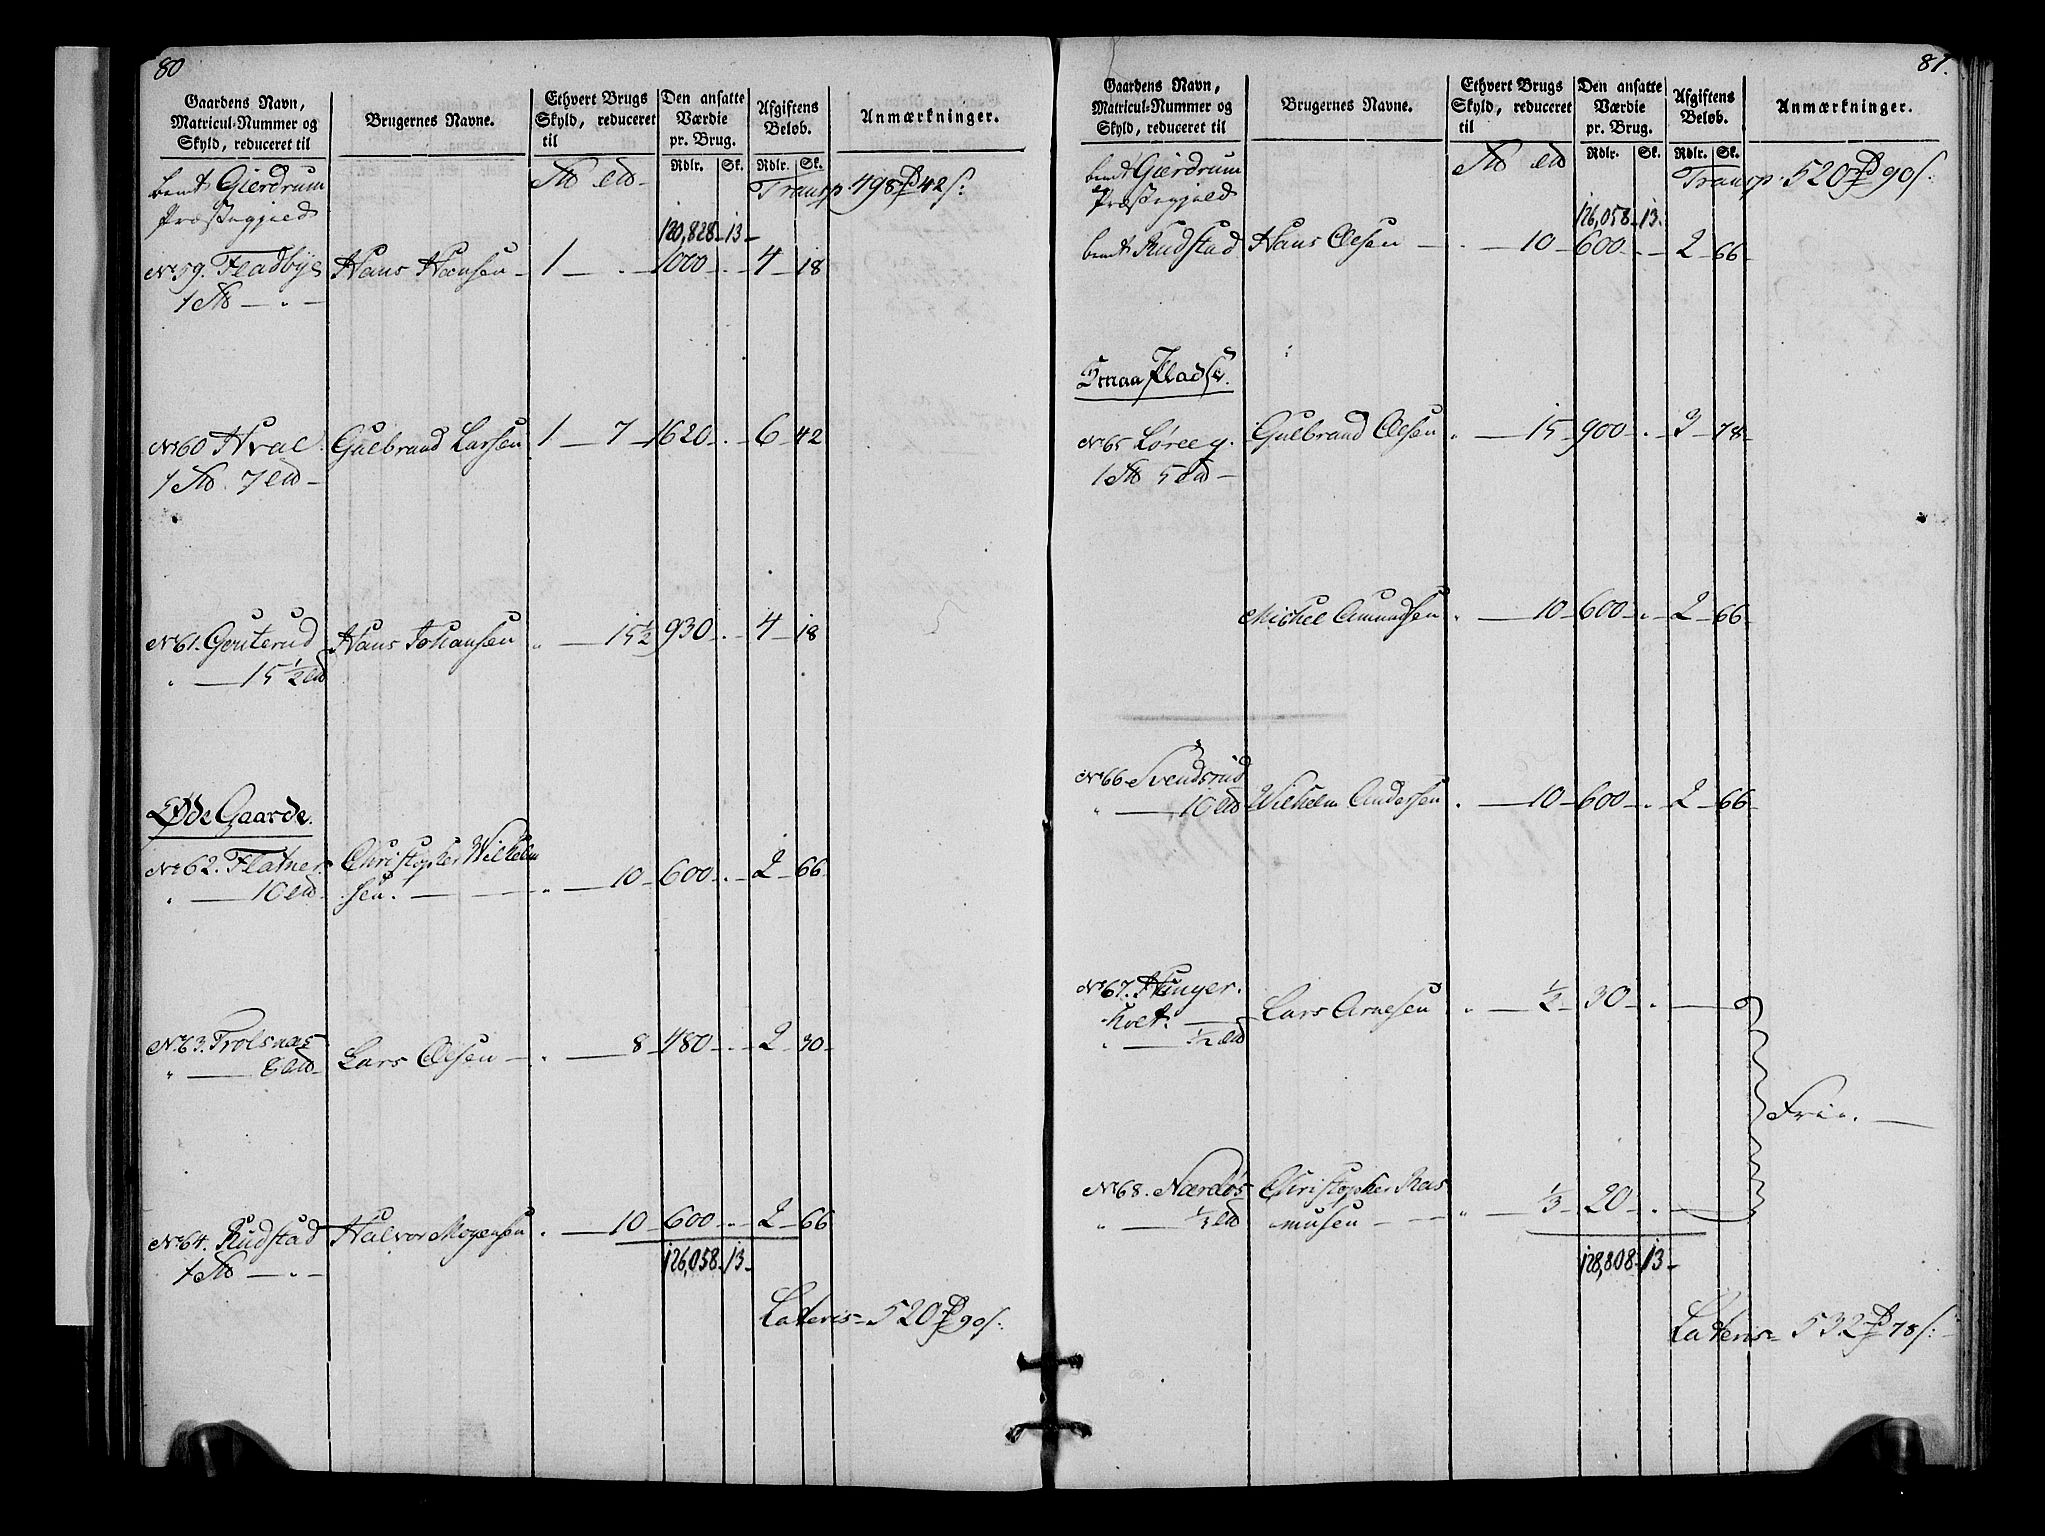 80
Gaardens Navn,
Matricul-Nummer og
Skyld, reduceret til
Brugernes Navne.
Ethvert Brugs
Skyld, reduceret
til
Den ansatte
Værdie
pr. Brug.
Rdlr. Sk.
Afgiftens
Beløb.
Rdlr. Sk.
Anmærkninger.
bemt Gierdrum
Præstegjeld
Transp. 498 42 s:
120,828 - 13 -
No 59. Fladbye Hans Hansen - 1 — . - 1000 - . - 4 - 18
1 — . —
No 60 Hval. Gulbrand Larsen 1 — 7 - 1620 - . - 6 - 42
1 7
No 61. Gouterud Hans Johansen " — 15½ 930 - . - 4 - 18
" — 15½
Øde Gaarde.
No 62. Flatner Christopher Wilhelm
" — 10 sen. — — " — 10 - 600 - . - 2 - 66
No 63. Trolsnæs
" — 8 Lars Olsen — . — 8 - 480 - . - 2 - 30
No 64. Rudstad Halvor Mogensen . — 10 - 600 - . - 2 - 66
1 — . —
126,058 - 13 -
Lateris = 520 90 s:
81.
Gaardens Navn,
Matricul-Nummer og
Skyld, reduceret til
Brugernes Navne.
Ethvert Brugs
Skyld, reduceret
til
Den ansatte
Værdie
pr. Brug.
Rdlr. Sk.
Afgiftens
Beløb.
Rdlr. Sk.
Anmærkninger.
bemt Gierdrum
Præstegjeld
Transp. 520 90 s:
126,058 - 13.
bemt Rudstad Hans Olsen — . — 10 - 600 - . - 2 - 66 -
Smaa Pladse.
No 65 Gulbrand Olsen " — 15 - 900 - . - 3 - 78 -
1 5
Michel Amundsen " — 10 - 600 - . - 2 - 66 -
No 66 Svendsrud
" — 10 Wilhelm Andersen . — 10 - 600 - . - 2 - 66 -
No 67. Hunger-
holt. — Lars Arnesen " — ½ - 30 - .
" — ½
Frie. —
No 68. Nærdøs Christopher Ras
" — ⅓ musen — — " — ⅓ - 20 - .
128,808 - 13 -
Lateris = 532 78 s: